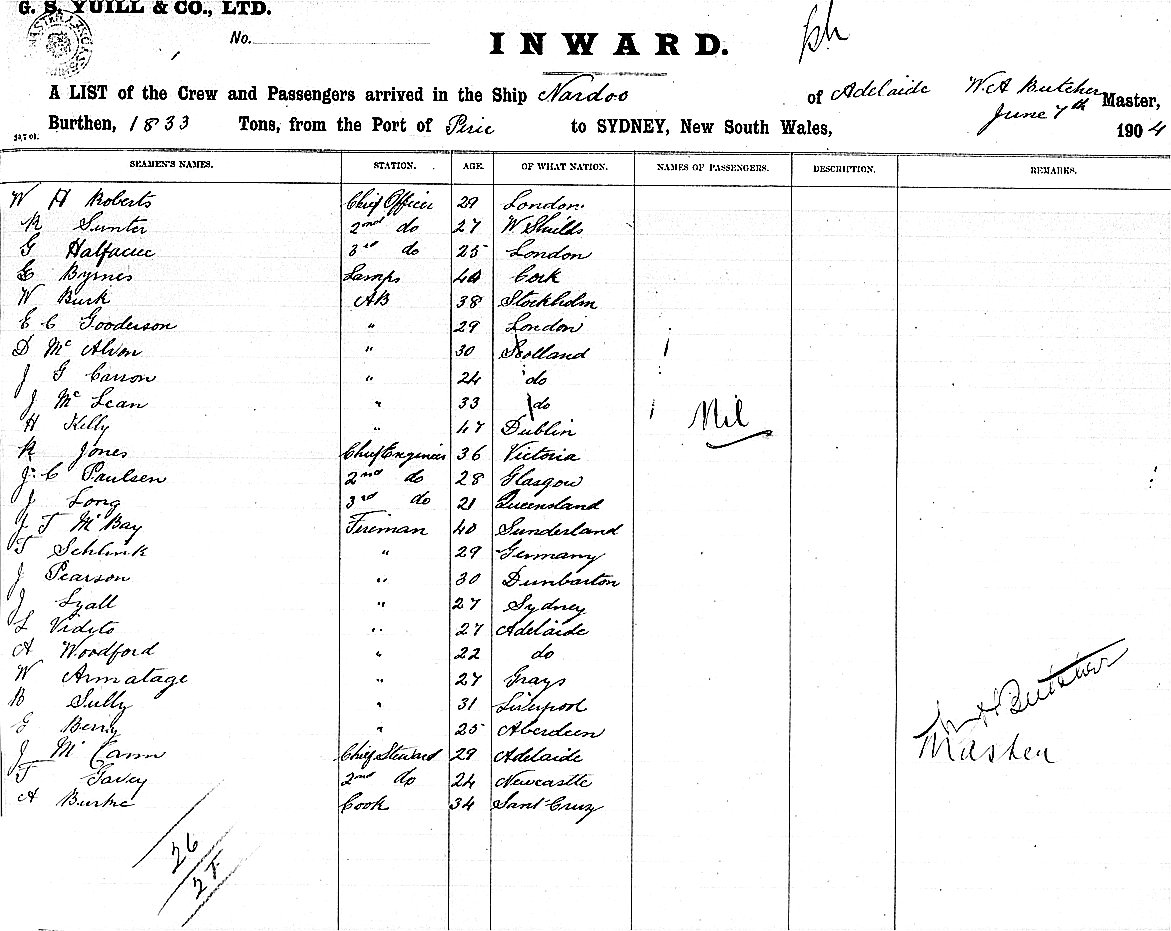 G. S. YUILL & CO., LTD.
No.
INWARD.
A LIST of the Crew and Passengers arrived in the Ship Nardoo of Adelaide W.A Butcher Master,
Burthen, 1833 Tons, from the Port of Pirie to SYDNEY, New South Wales, June 7th 1904
SEAMEN'S NAMES. STATION. AGE. OF WHAT NATION. NAMES OF PASSENGERS. DESCRIPTION. REMARKS.
W H Roberts Chief Officer 29 London
R Sunter 2nd do 27 W Shields
G Halfacre 3rd do 25 London
E Byrnes Lamps 40 Cork
W Burk AB 38 Stockholm
E C Gooderson " 29 London
D Mc Alvon " 30 Scotland
J G Carson " 24 do
J Mc Lean " 33 do Nil
H Kelly " 47 Dublin
R Jones Chief Engineer 36 Victoria
J. C Paulsen 2nd do 28 Glasgow
J Long 3rd do 21 Queensland
J T McBay Fireman 40 Sunderland
T Schlink " 29 Germany
J Pearson " 30 Dunbarton
J Lyall " 27 Sydney
L Vidito " 27 Adelaide
A Woodford " 22 do
W Armatage " 27 Grays
B Sully " 31 Liverpool
G Berry " 25 Aberdeen
J Mc Cann Chief Steward 29 Adelaide
T Gavey 2nd do 24 Newcastle
A Burke Cook 34 Sant Cruz
Butcher
Master
26